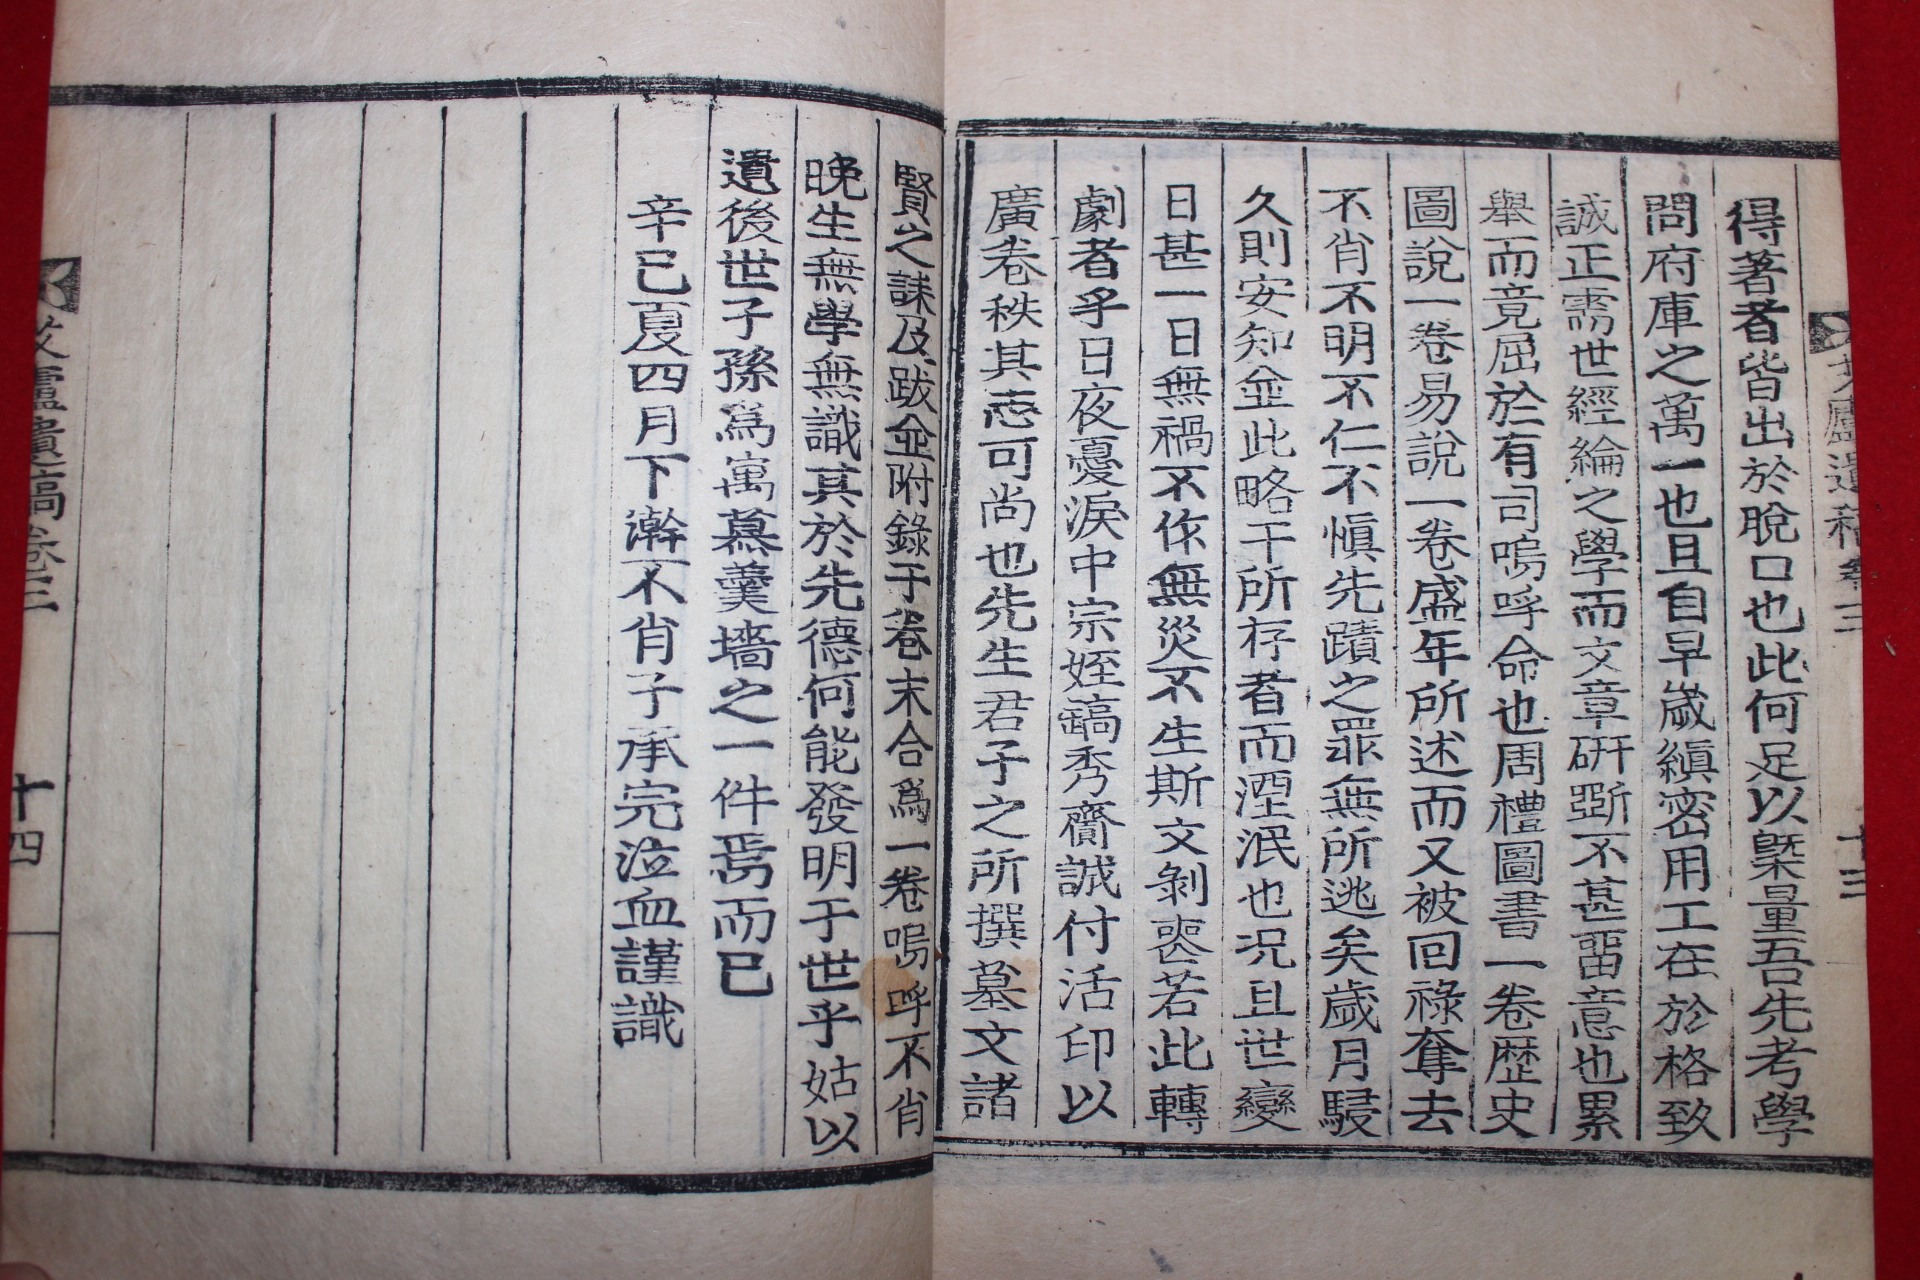 得著者皆出於脫口也此何足以槩量吾先考學
問府庫之萬一也且自早歲縝密用工在於格致
誠正需世經綸之學而文章硏斲不甚畱意也累
舉而竟屈於有司嗚呼命也周禮圖書一卷歷史
圖說一卷易說一卷盛年所述而又被回祿奪去
不肖不明不仁不愼先蹟之罪無所逃矣歲月駸
久則安知並此略干所存者而湮泯也况且世變
日甚一日無禍不作無災不生斯文剝喪若此轉
劇者乎日夜憂淚中宗姪鎬秀齎誠付活印以
廣卷秩其志可尚也先生君子之所撰墓文諸
賢之誄及跋並附錄于卷末合爲一卷嗚呼不肖
晚生無學無識其於先德何能發明于世乎姑以
遺後世子孫爲寓慕羹墻之一件焉而已
辛巳夏四月下澣不肖子承完泣血謹識
廬遺稿卷三
十三
廬遺稿卷三
十四